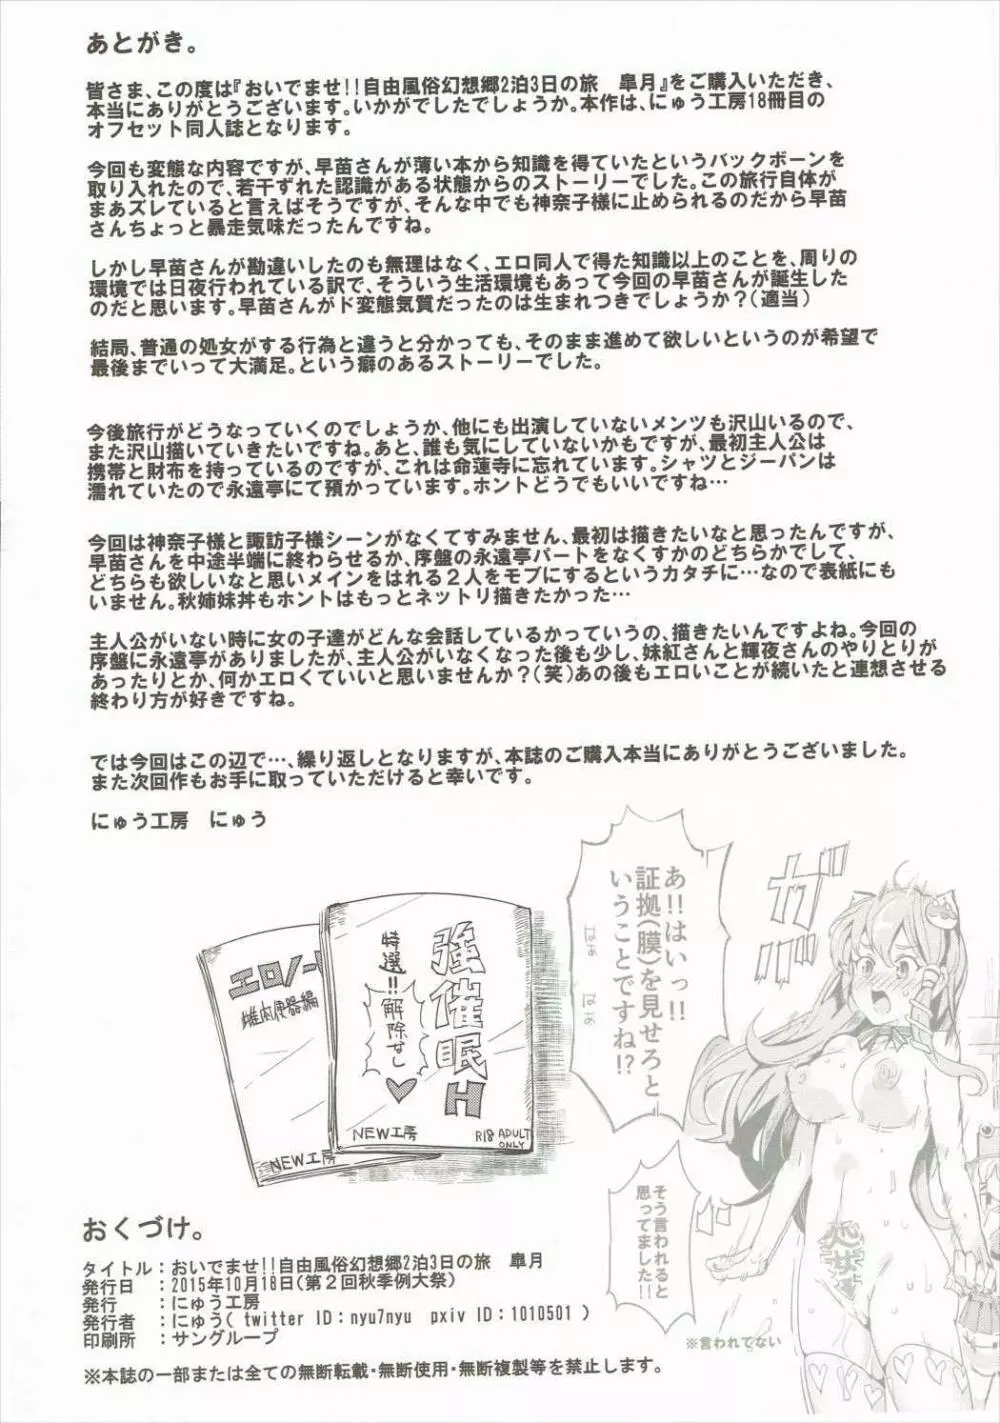 あとがき。
皆さま、この度は『おいでませ!!自由風俗幻想郷2泊3日の旅　皐月』をご購入いただき、
本当にありがとうございます。いかがでしたでしょうか。本作は、にゅう工房18冊目の
オフセット同人誌となります。
今回も変態な内容ですが、早苗さんが薄い本から知識を得ていたというバックボーンを
取り入れたので、若干ずれた認識がある状態からのストーリーでした。この旅行自体が
まあズレていると言えばそうですが、そんな中でも神奈子様に止められるのだから早苗
さんちょっと暴走気味だったんですね。
しかし早苗さんが勘違いしたのも無理はなく、エロ同人で得た知識以上のことを、周りの
環境では日夜行われている訳で、そういう生活環境もあって今回の早苗さんが誕生した
のだと思います。早苗さんがド変態気質だったのは生まれつきでしょうか？（適当）
結局、普通の処女がする行為と違うと分かっても、そのまま進めて欲しいというのが希望で
最後までいって大満足。という癖のあるストーリーでした。
今後旅行がどうなっていくのでしょうか、他にも出演していないメンツも沢山いるので、
また沢山描いていきたいですね。あと、誰も気にしていないかもですが、最初主人公は
携帯と財布を持っているのですが、これは命蓮寺に忘れています。シャツとジーパンは
濡れていたので永遠亭にて預かっています。ホントどうでもいいですね…
今回は神奈子様と諏訪子様シーンがなくてすみません、最初は描きたいなと思ったんですが、
早苗さんを中途半端に終わらせるか、序盤の永遠亭パートをなくすかのどちらかでして、
どちらも欲しいなと思いメインをはれる２人をモブにするというカタチに…なので表紙にも
いません。秋姉妹丼もホントはもっとネットリ描きたかった…
主人公がいない時に女の子達がどんな会話しているかっていうの、描きたいんですよね。今回の
序盤に永遠亭がありましたが、主人公がいなくなった後も少し、妹紅さんと輝夜さんのやりとりが
あったりとか、何かエロくていいと思いませんか？（笑）あの後もエロいことが続いたと連想させる
終わり方が好きですね。
では今回はこの辺で…、繰り返しとなりますが、本誌のご購入本当にありがとうございました。
また次回作もお手に取っていただけると幸いです。
にゅう工房　にゅう
あ!!はいっ!!
証拠（膜）を見せろと
いうことですね!?
はぁ
はぁ
ガバ
強催眠H
特選!!解除なし
NEW工房
R18 ADULT
ONLY
エロノー
雌肉便器編
NEW工房
そう言われると
思ってました!!
処女
※言われてない
おくづけ。
タイトル：おいでませ!!自由風俗幻想郷2泊3日の旅　皐月
発行日　：2015年10月18日（第２回秋季例大祭）
発行　　：にゅう工房
発行者　：にゅう（ twitter ID：nyu7nyu　pxiv ID：1010501 ）
印刷所　：サングループ
※本誌の一部または全ての無断転載・無断使用・無断複製等を禁止します。